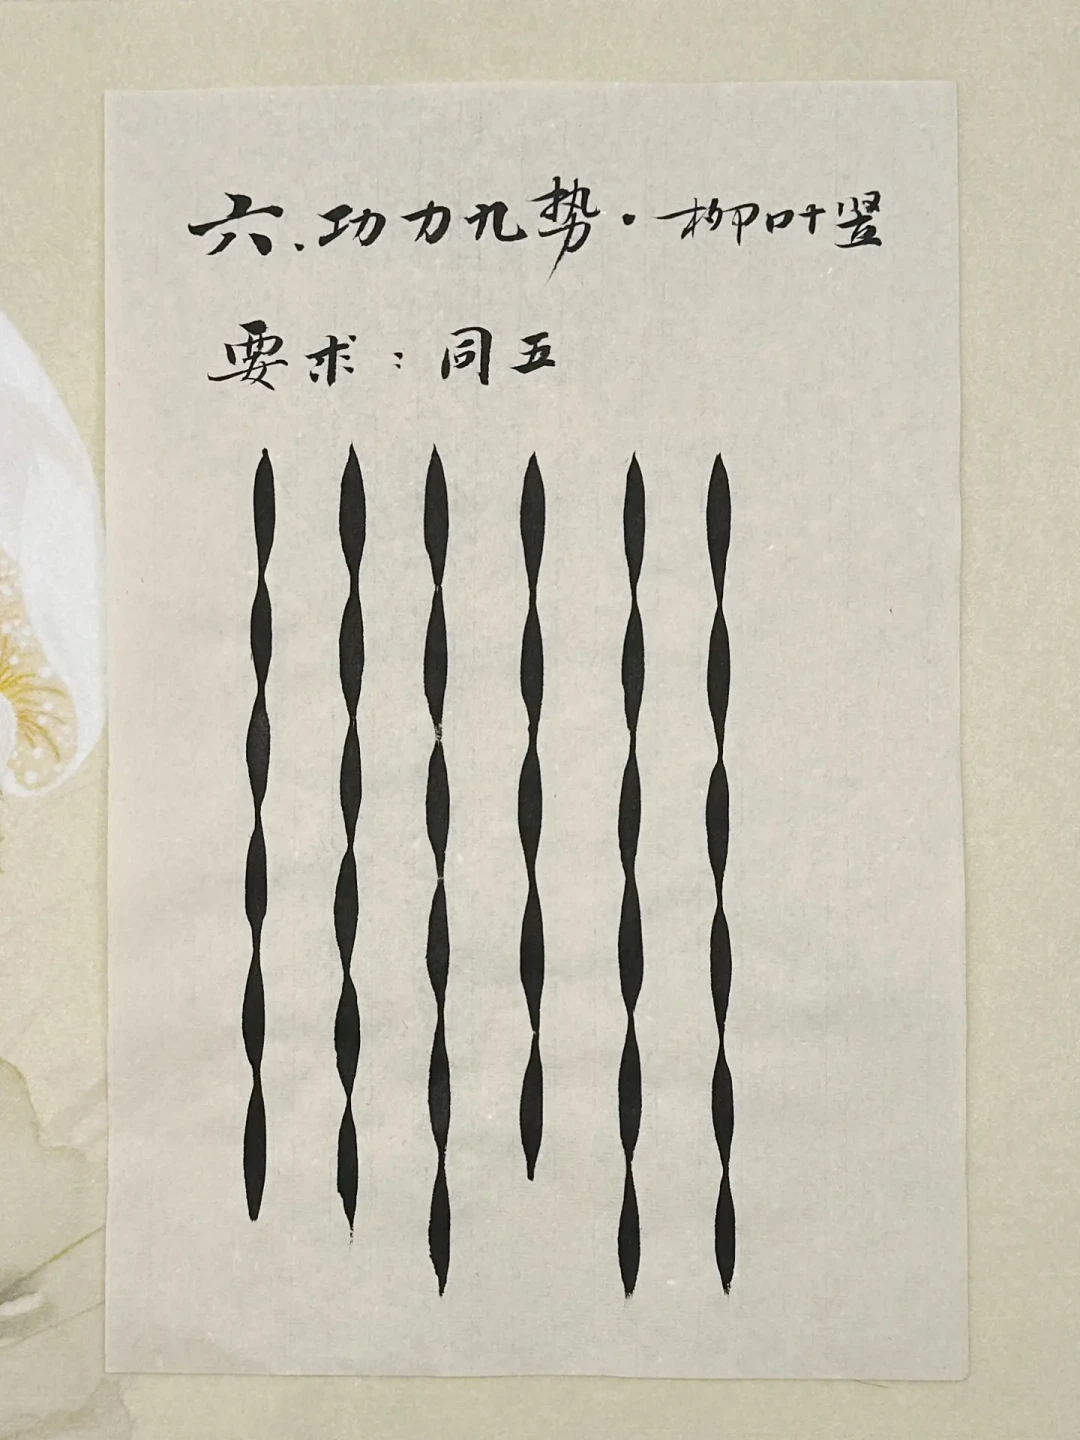 六.功力九势·柳叶竖
要求:同五